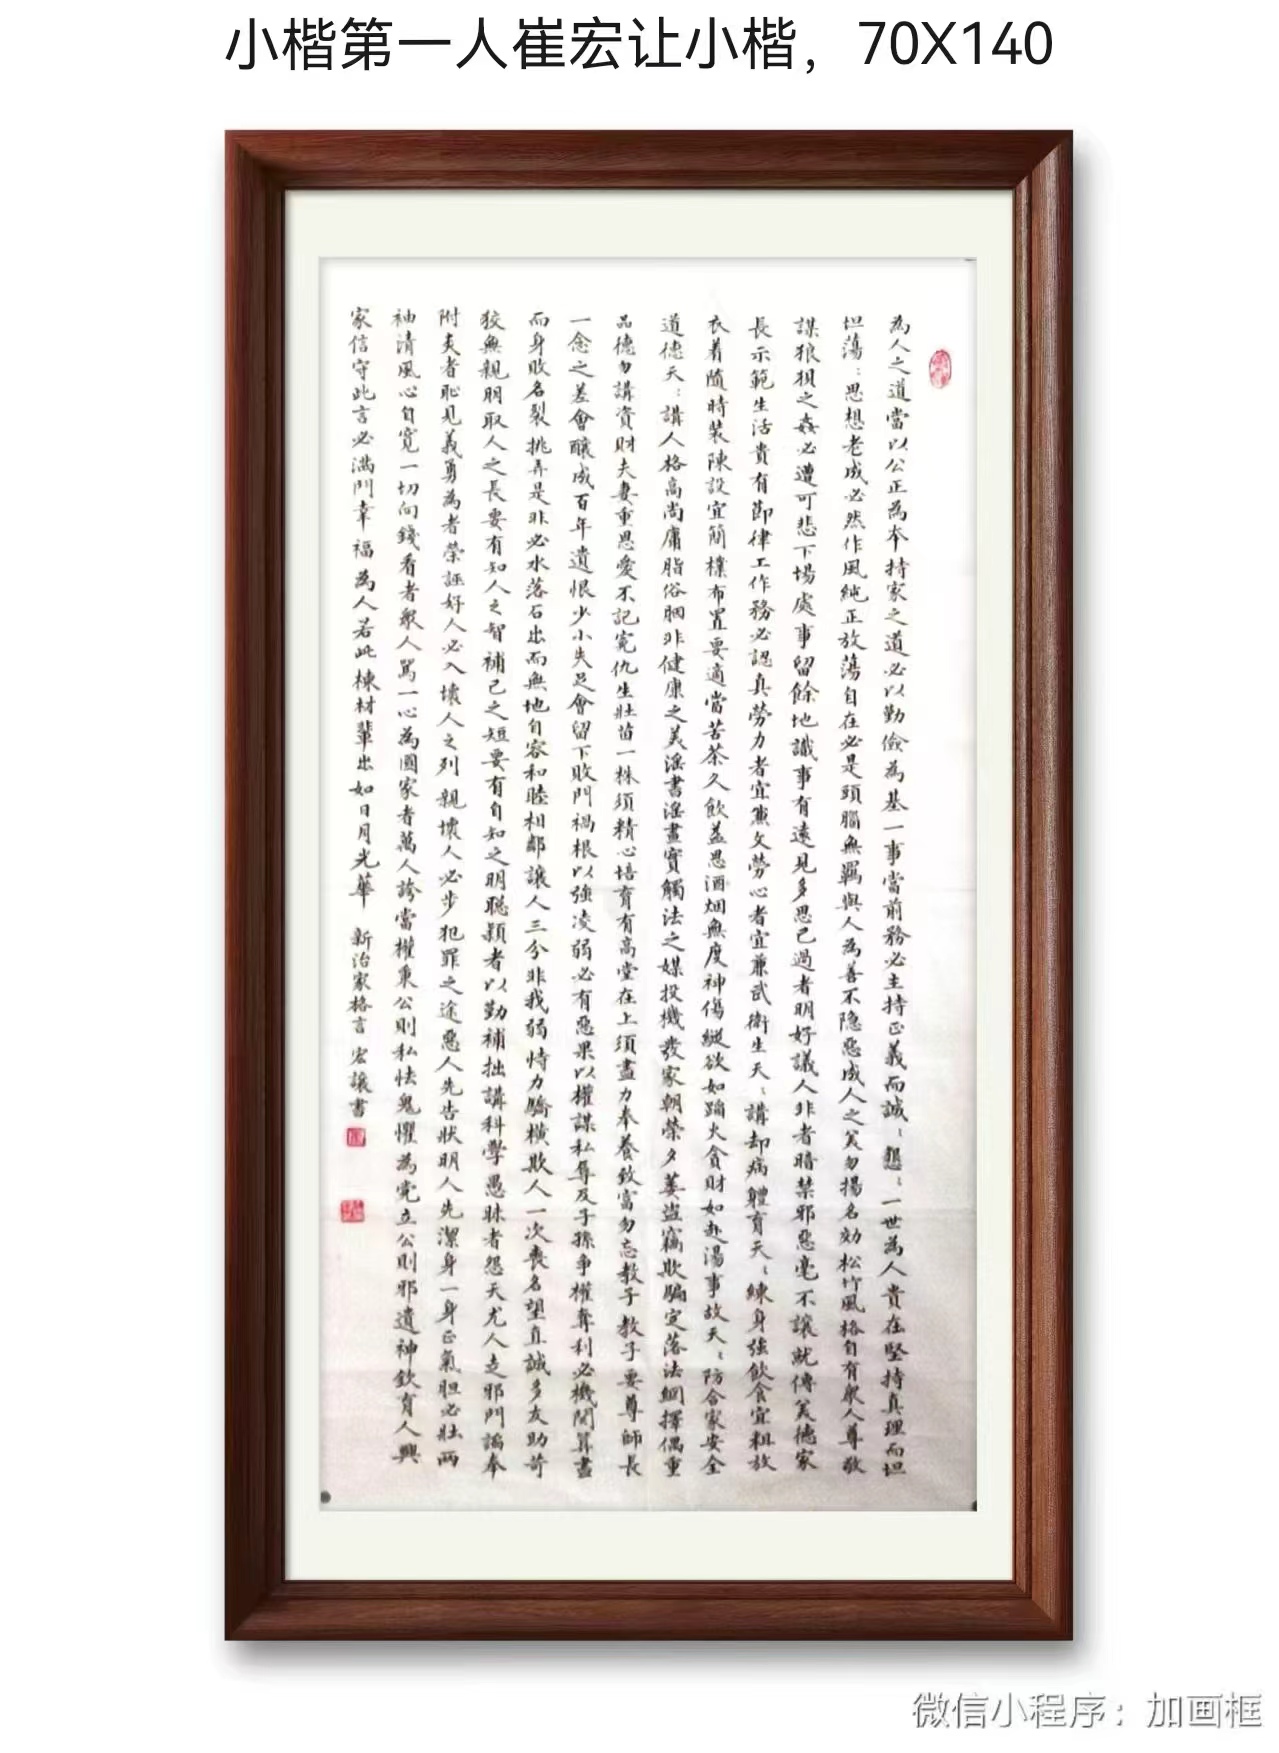 小楷第一人崔宏让小楷，70X140
為人之道當以公正為本持家之道必以勤儉為基一事當前務必主持正義而誠：懇：一世為人貴在堅持真理而坦
坦蕩：思想老成必然作風純正放蕩自在必是頭腦無羈與人為善不隐惡成人之美勿揚名効松竹風格自有衆人尊敬
謀狼狽之姦必遭可悲下場處事留餘地識事有遠見多思己過者明好議人非者暗禁邪惡毫不讓就傳美德家
長示範生活貴有節律工作務必認真勞力者宜兼文勞心者宜兼武衛生天：講却病體育天：練身強飲食宜粗放
衣着隨時裝陳設宜簡樸布置要適當苦茶久飲益思酒烟無度神傷縱欲如蹈火貪財如赴湯事故天：防合家安全
道德天：講人格高尚庸脂俗胭非健康之美淫書淫畫實觸法之媒投機發家朝榮夕萎盜竊欺騙定落法網擇偶重
品德勿講資財夫妻重恩愛不記寃仇生壯苗一株須精心培育有高堂在上須盡力奉養致富勿忘教子教子要尊師長
一念之差會釀成百年遺恨少小失足會留下敗門禍根以強凌弱必有惡果以權謀私辱及子孫争權奪利必機関算盡
而身敗名裂挑弄是非必水落石出而無地自容和睦相鄰讓人三分非我弱恃力驕横欺人一次喪名望直誠多友助苛
狡無親朋取人之長要有知人之智補己之短要有自知之明聰穎者以勤補拙講科學愚昧者怨天尤人走邪門諂奉
附炎者恥見義勇為者榮誣好人必入壞人之列親壞人必步犯罪之途惡人先告狀明人先潔身一身正氣胆必壯两
袖清風心自寬一切向錢看者衆人罵一心為國家者萬人誇當權秉公則私怯鬼懼為党立公則邪遺神欽育人興
家信守此言必满門幸福為人若此棟材輩出如日月光華 新治家格言 宏讓書
微信小程序：加画框